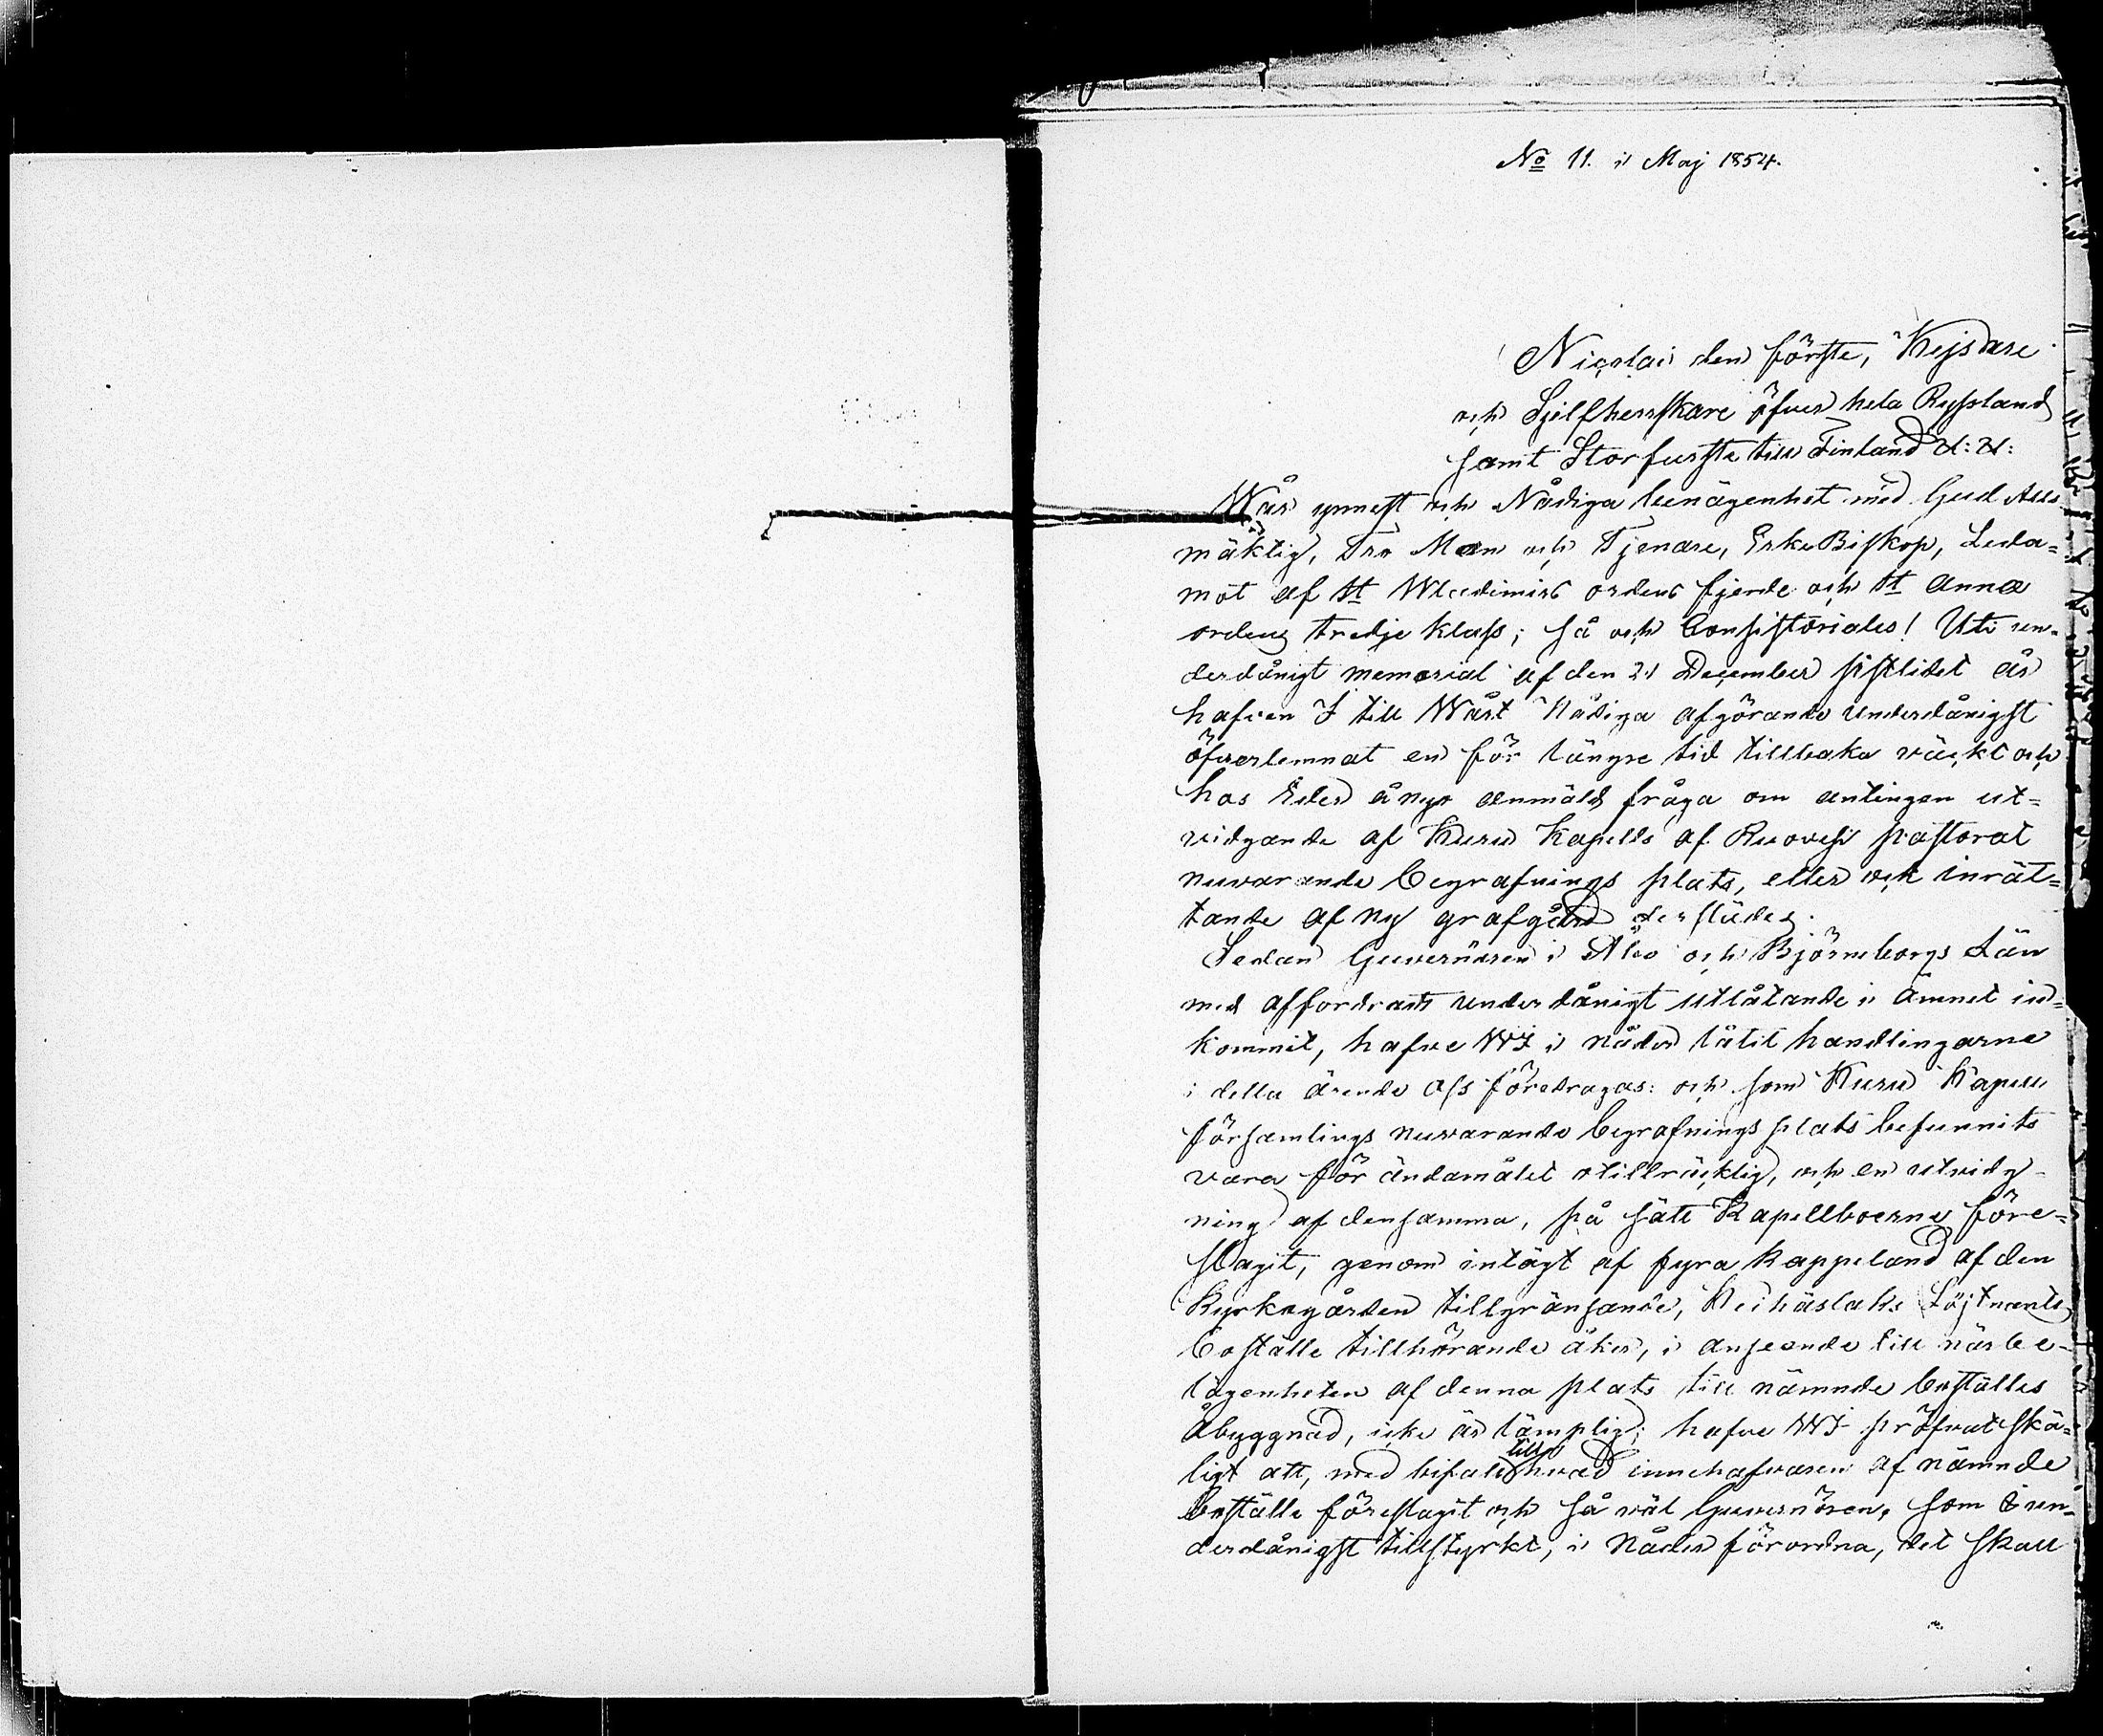 No 11. i Maj 1854.
Nicolai den förste, Kejsare
och Sjelfherrskare öfver hela Ryssland
samt Storfurste till Finland &: &:
Wår ynnest och Nådiga benägenhet med Gud Alls
mäktig, Tro Man och Tjenare, ErkeBiskop, Leda=
mot af St Wladimirs ordens fjerde och St Annæ
ordens tredje klass; så och Consistoriales! Uti un=
derdånigt memorial af den 21 December sistlidet år
hafven I till Wårt Nådiga afgörande underdånigst
öfverlemnat en för längre tid tillbaka väckt och
hos Eder ånyo anmäld fråga om antingen ut=
vidgande af Kuru Kapells af Ruovesi pastorat
nuvarande begrafnings plats, eller ock inrät=
tande af ny grafgård derstädes.
Sedan Guvernören i Åbo och Björneborgs Län
med affordradt underdånigt utlåtande i ämnet in=
kommit, hafve WI i nåder låtit handlingarne
i detta ärende oss föredragas: och som Kuru Kapell
församlings nuvarande begrafnings plats befunnits
vara för ändamålet otillräcklig, och en utvidg=
ning af densamma, på sätt Kapellboerne före=
slagit, genom intägt af fyra kappeland af den
Kyrkogården tillgränsande, Keihäslaks Löjtnants
Boställe tillhörande åker, i anseende till närbe=
lägenheten af denna plats till nämnde boställes
Åbyggnad, icke är lämplig; hafve WI pröfvat skä=
ligt att, med bifall till hvad innehafvaren af nämnde
Boställe föreslagit och så väl Guvernören, som I un=
derdånigst tillstyrkt, i Nåder förordna, det skall